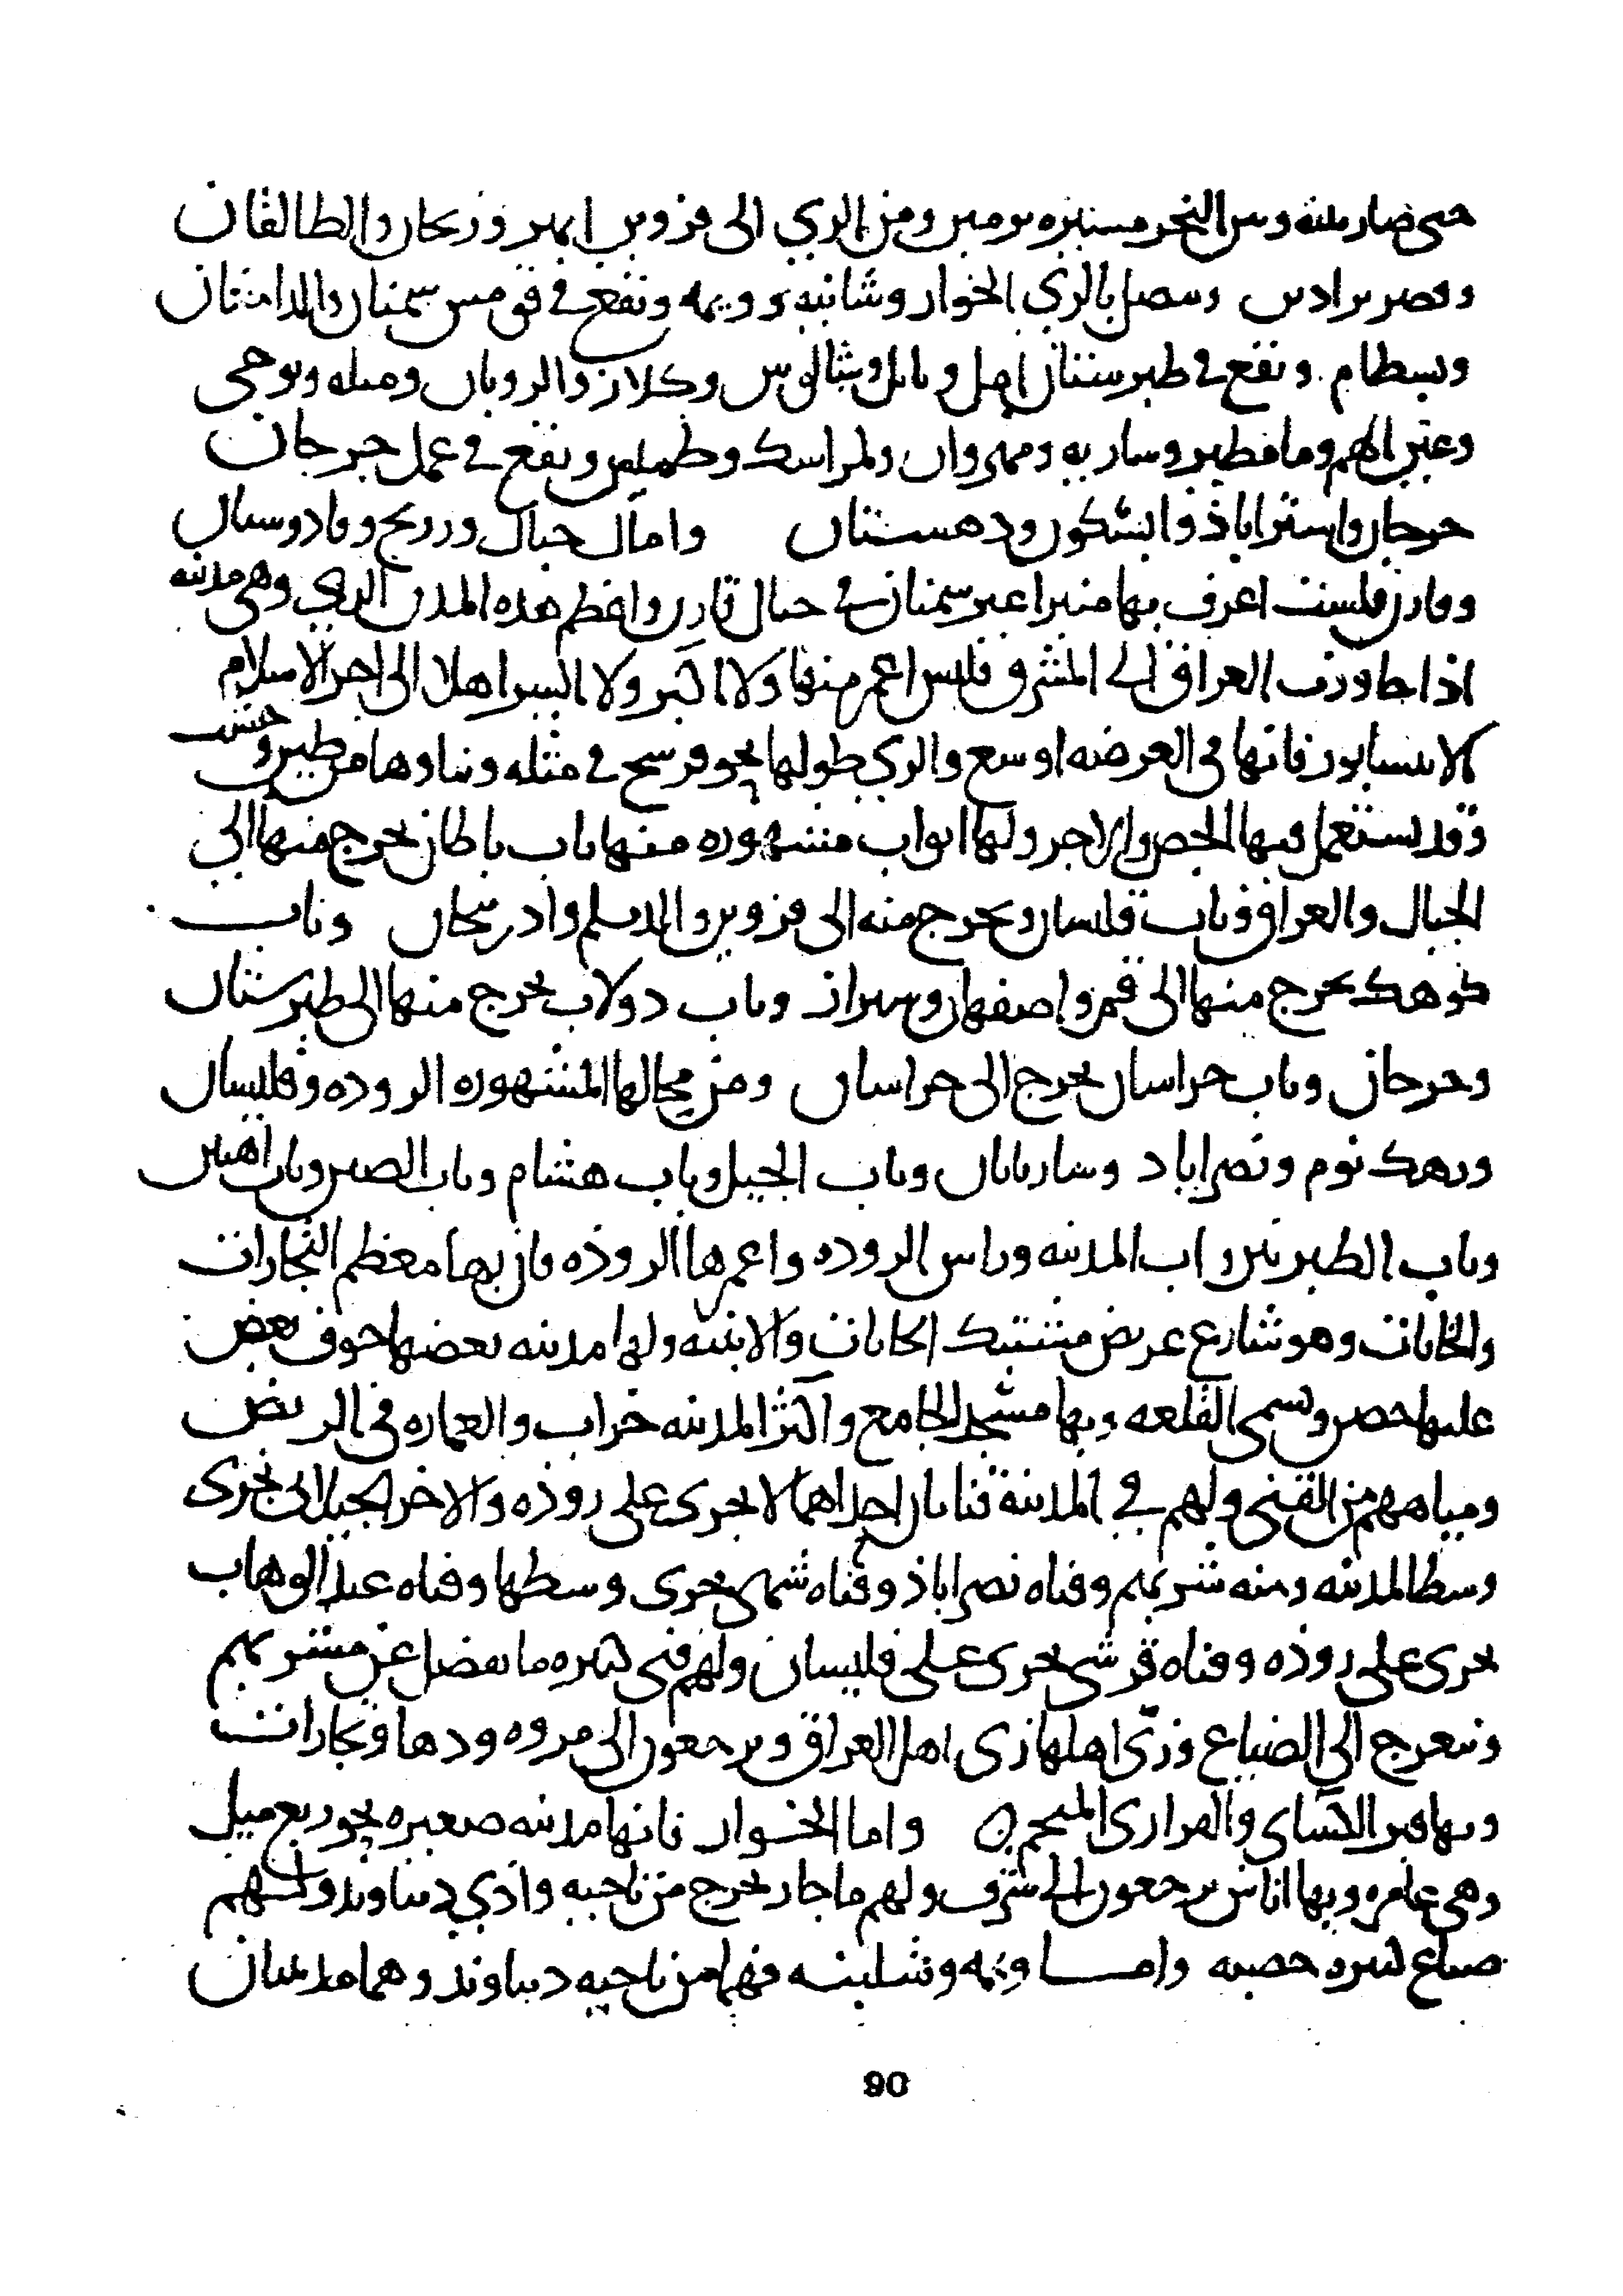 حتى صار بينه وبين البحر مسيره يومين ومن الري الى قزوين ابهر وزنجان والطالقان
وقصر براذين ويتصل بالري الخوار وشلنبه وويمه وتقع في قومس سمنان والدامغان
وبسطام وتقع في طبرستان امل وناتل وشالوس وكلار والرويان وميله وبرجي
وعين الهم ومامطير وساريه ومهروان ولمراسك وطميس وتقع في عمل جرجان
جرجان واستراباذ وابسكون ودهستان واما جبال وروبنج وفادوسبان
وقارن فلست اعرف بها منبرا غير سمنان في جبال قارن واعظم هذه المدن الري وهي مدينه
اذا جاوزت العراق الى المشرق فليس اعمر منها ولا اكبر ولا ايسر اهلا الى اخر الاسلام
الا نيسابور فانها في العرضه اوسع والري طولها نحو فرسخ في مثله وبناوها من طين وخشب
وقد يستعمل فيها الجص والاجر ولها ابواب مشهوره منها باب باطان يخرج منها الى
الجبال والعراق وباب فليسان ويخرج منه الى قزوين والديلم واذربيجان وباب
كوهك يخرج منها الى قم واصفهان وشيراز وباب دولاب يخرج منها الى طبرستان
وجرجان وباب خراسان يخرج الى خراسان ومن محالها المشهوره الروده وفليسان
ودهك نوم ونصراباد وساربانان وباب الجبل وباب هشام وباب الصين وباب اهنين
وباب الطبريين وباب المدينه وراس الروده واعمرها الروذه فان بها معظم التجارات
والخانات وهو شارع عريض مشتبك الخانات والابنيه ولها مدينه بعضها جوف بعض
عليها حصن وتسمى القلعه وبها مسجد الجامع واكثر المدينه خراب والعماره في الربض
ومياههم من القنى ولهم في المدينة قناتان احداهما لا يجرى على روذه والاخر الجيلاني تجرى
وسط المدينه ومنه شربهم وقناه نصراباذ وقناه شهي يجرى وسطها وقناه عبد الوهاب
يجرى على روذه وقناه قرشي يجرى على فليسان ولهم قنى كثيره ما يفضل عن مشربهم
وتتفرج الى الضياع وزى اهلها زى اهل العراق ويرجعون الى مروه ودها وتجارات
وبها قبر الكساى والفرارى المنجم واما الخوار فانها مدينه صغيره نحو ربع ميل
وهي عامره وبها اناس يرجعون الى شرف ولهم ما جار يخرج من ناحيه وادي دنباوند ولهم
ضياع كثيره خصبه واما ويمه وشلبنه فهما من ناحيه دنباوند وهما مدينتان
90